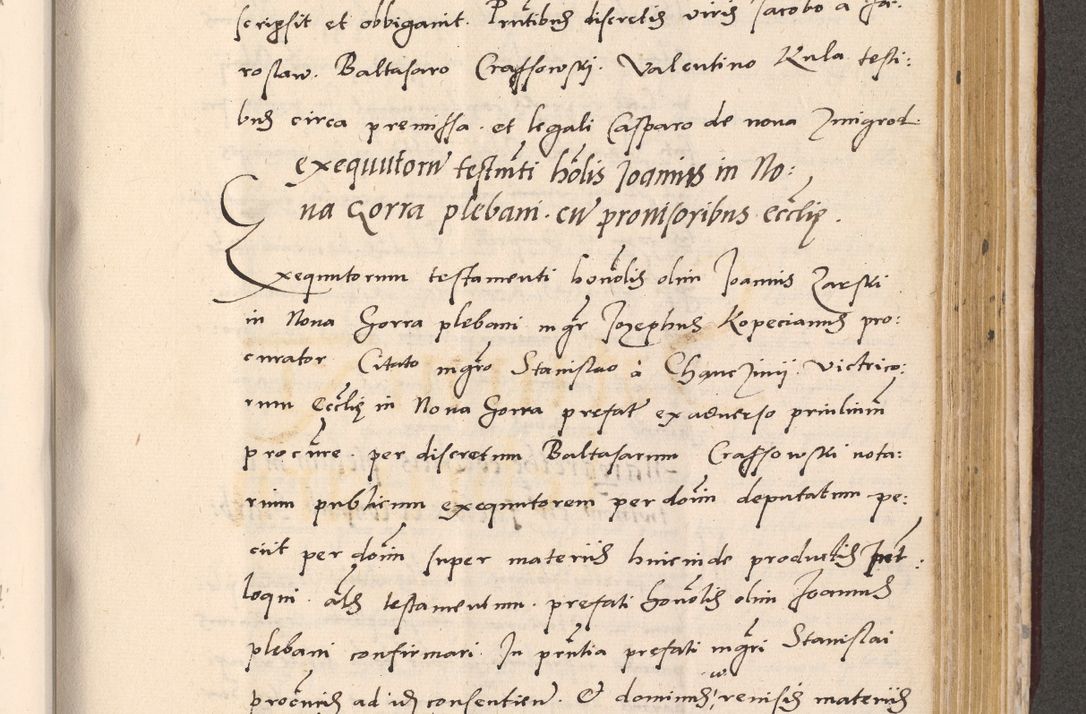 scripsit et obbigavit. Pñtibus discretis viris Jacobo a Ja-
roslaw. Baltasaro Crassowski. Valentino Kula testi:
bus circa premissa. et legali Casparo de nova Zmigrod.
exequutorũ testm̃ti hõlis Joannis in No:
va Gorra plebani. cũ provisoribus Eccl̃ię.
Exequutorum testamenti honõlis olim Joannis Zarski
in Nova Gorra plebani mgr̃ Josephus Kopecianus pro:
curator Citato mgr̃o Stanislao à Chanczinii. Victrico:
rum Eccl̃ię in Nova Gorra prefat̃ ex adverso privilium
procũre. per discretum Baltasarum Crassowski nota:
rium publicum exequutorem per doñm deputatum pe:
ciit per doñm super materiis hincinde productis
loqui. al̃s testamentum. prefati honõlis olim Joannis
plebani confirmari. In pñtia prefati mgr̃i Stanislai
procũris ad id consentieñ. Et dominus revisis materiis